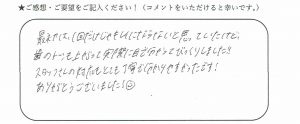 ★ご感想・ご要望をご記入ください！（コメントをいただけると幸いです。）
最初は、1回だけじゃキレイにならないと思っていたけど、
歯のトーンも上がって実際に自分でやってびっくりしました!!
スタッフさんの対応もとても丁寧で分かりやすかったです!
ありがとうございました☺